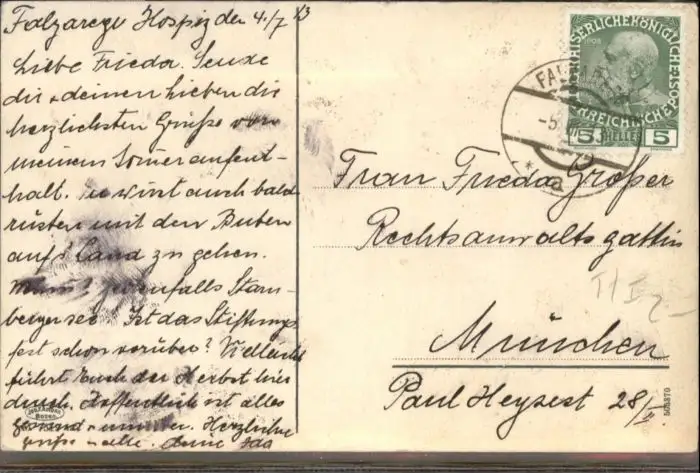 Falzarego Hospiz den 4./7 13
Liebe Frieda. Sende
dir u. deinen Lieben die
herzlichsten Grüße von
meinem Someraufent-
halt. Du wirst auch bald
rüsten mit den Buben
auf's Land zu gehen.
jedenfalls Starn-
bergersee. Ist das Stiftungs
fest schon vorüber? Vielleicht
führt Euch der Herbst hier
durch. Hoffentlich ist alles
gesund u. munter. Herzliche
Grüße deine
KAISERLICHE KÖNIGLICHE
ÖSTERREICHISCHE POST
1908
5 HELLER 5
FAL
-5.
Frau Frieda Großer
Rechtsanwaltsgattin
München
Paul Heysest 28/I.